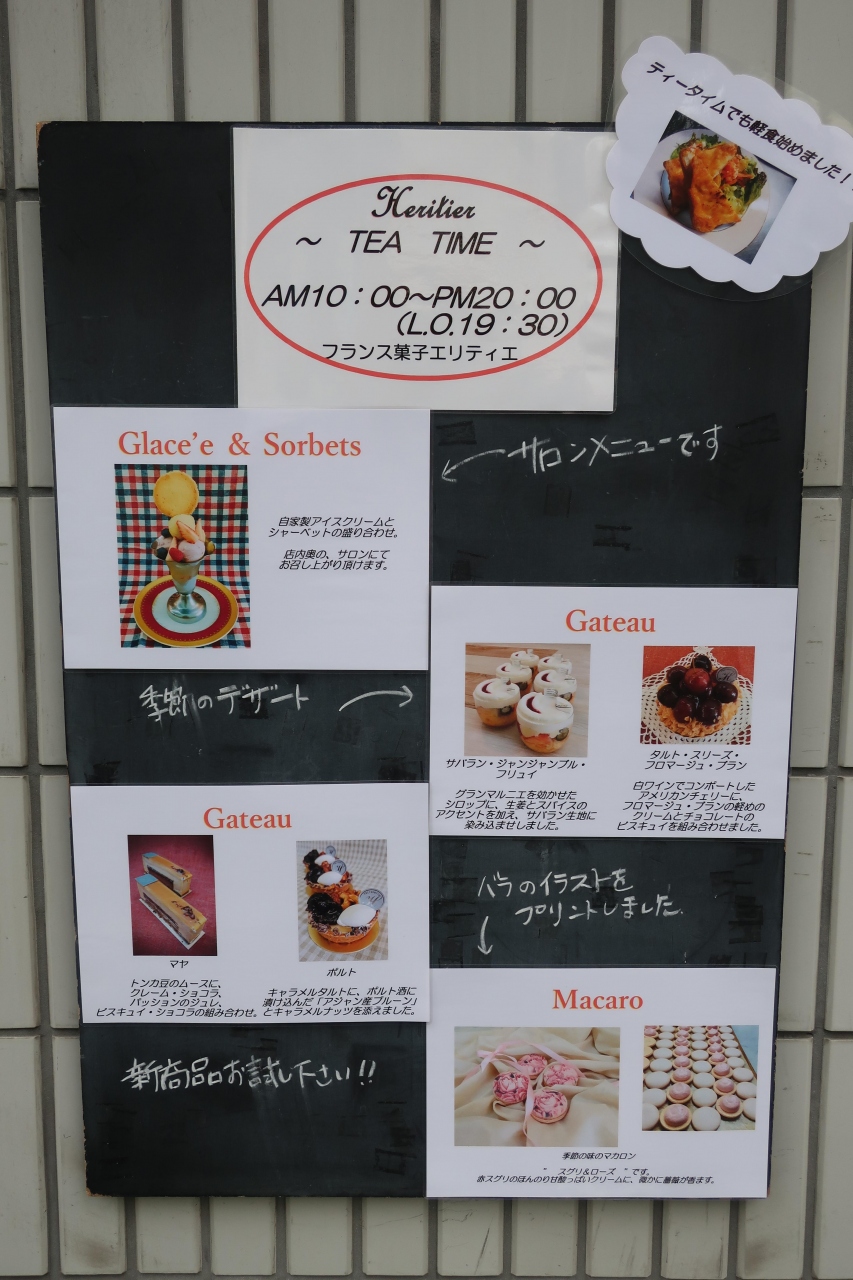 ティータイムでも軽食始めました！
Heritier
～ TEA TIME ～
AM10：00～PM20：00
（L.O.19：30）
フランス菓子エリティエ
Glace'e & Sorbets
自家製アイスクリームと
シャーベットの盛り合わせ。
店内奥の、サロンにて
お召し上がり頂けます。
サロンメニューです
Gateau
サバラン・ジャンジャンブル・
フリュイ
グランマルニエを効かせた
シロップに、生姜とスパイスの
アクセントを加え、サバラン生地に
染み込ませしました。
タルト・スリーズ・
フロマージュ・ブラン
白ワインでコンポートした
アメリカンチェリーに、
フロマージュ・ブランの軽めの
クリームとチョコレートの
ビスキュイを組み合わせました。
季節のデザート
Gateau
マヤ
トンカ豆のムースに、
クレーム・ショコラ、
パッションのジュレ、
ビスキュイ・ショコラの組み合わせ。
ポルト
キャラメルタルトに、ポルト酒に
漬け込んだ「アジャン産プルーン」
とキャラメルナッツを添えました。
バラのイラストを
プリントしました
Macaro
季節の味のマカロン
" スグリ&ローズ "です。
赤スグリのほんのり甘酸っぱいクリームに、微かに薔薇が香ます。
新商品お試し下さい!!